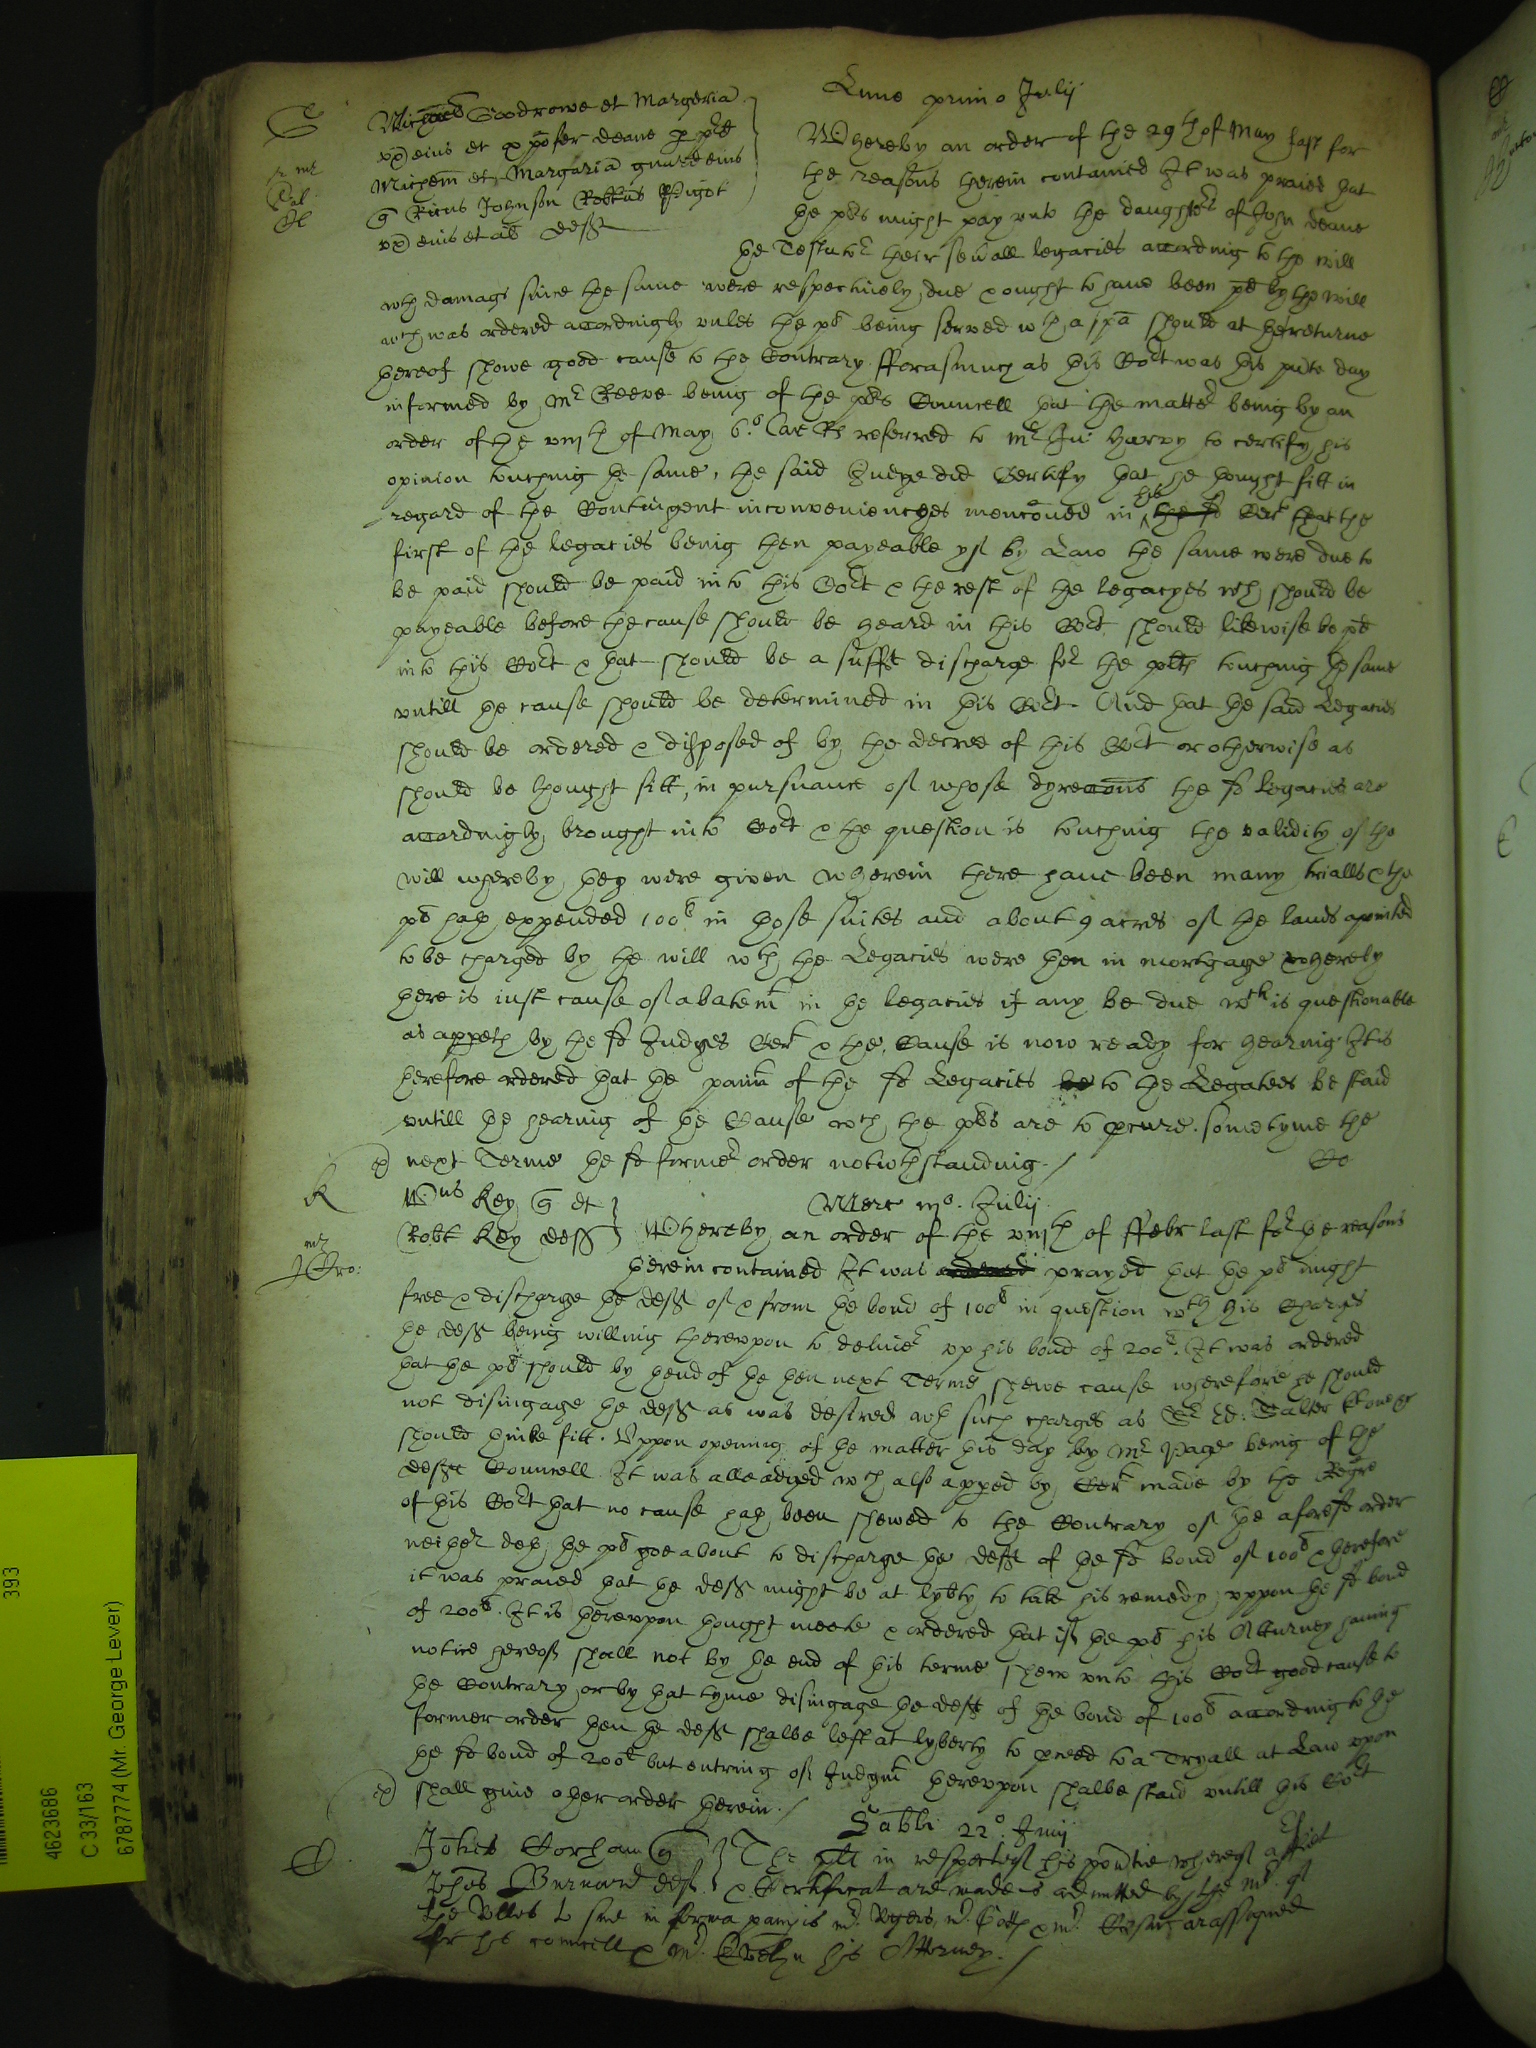 Lune primo Julij
G
Michael Goodrowe et Margeria
vx eius et xpofer Deane p pred
Michem et Margaria guard eius
q Ricus Johnson Robtus Pigot
vx eius et al Defts
Whereby an order of the 29th of May last for
the reasons therein contained It was praied that
the pts might pay vnto the daughters of John Deane
the Testator their seuall legacies according to the will
wth damags since the same were respectiuely due & ought to haue been pd by the will
wch was ordered accordingly vnles the pt being served wth a spa should at the returne
thereof showe good cause to the Contrary. fforasmuch as this Cort was this pnte day
informed by Mr Reeve being of the pts Councell that the matter being by an
order of the viijth of May 6o Car Rs referred to Mr Ju: Harvy to certify his
opinion touching the same, the said Judge did Certify that he thought fitt in
regard of the Contingent inconveniences mencoued in his the sd Cert that the
first of the legacies being then payeable yf by Law the same were due to
be paid should be paid into this Cort & the rest of the legacyes wch should be
payeable before the cause should be heard in this Cort should likewise be pd
into this Cort & that should be a sufft discharge for the plts touching the same
vntill the cause should be determined in this Cort. And that the said Legacies
should be ordered & disposed of by the decree of this Cort or otherwise as
should be thought fitt, in pursuance of whose dyrecons the sd legacies are
accordingly brought into Cort & the question is touching the validity of the
will whereby they were given wherein there haue been many trialls & the
pt hath expended 100l in those suites and about 9 acres of the lands apointed
to be charged by the will wth the Legacies were then in mortgage whereby
there is iust cause of abatemt in the legacies if any be due wch is questionable
as appeth by the sd Judges Cert & the Cause is now ready for hearing It is
therefore ordered that the paimt of the sd Legacies be to the Legatees be staid
vntill the hearing of the Cause wch the pts are to pcure sometyme the
next Terme the sd former order notwthstanding /
Co
K
Wms Key q et
Robt Key Deft
Merc iijo. Julij
Whereby an order of the viijth of ffebr last for the reasons
therein contained It was ordered prayed that the pt might
free & discharge the deft of & from the bond of 100l in question wth his Charges
the deft being willing therevpon to deliuer vp his bond of 200l. It was ordered
that the pt should by thend of the then next Terme shewe cause wherefore he should
not disingage the deft as was desired wth such charges as Sr Ed: Salter
should thinke fitt. Vppon opening of the matter this day by Mr Page being of the
defts Councell It was alleadged wch also apped by Cert made by the Regre
of this Cort that no cause hath been shewed to the Contrary of the aforesd order
neither doth the pt goe about to discharge the deft of the sd bond of 100l & therefore
it was praied that the deft might be at lybty to take his remedy vppon the sd bond
of 200l. It is therevpon thought meete & ordered that if the pt his Atturney hauing
notice thereof shall not by the end of this terme shew vnto this Cort good cause to
the Contrary or by that tyme disingage the deft of the bond of 100l according to the
former order then the deft shalbe left at lyberty to pceed to a Tryall at Law vpon
the sd bond of 200l but entring of Judgmt therevpon shalbe staid vntill this Cort
shall giue other order herein. /
Sabbi 22o. Junij
C
Johes Corham q
Thos Burnard deft
The plt in respecte of his pouertie whereof affidt
& Certificat are made is admitted by the Mr of
the Rolles to sue in forma paupis mr Rogers, mr
for his councell & Mr Evelyn his Attorney. /
393
4623686
C 33/163
6787774 (Mr. George Lever)